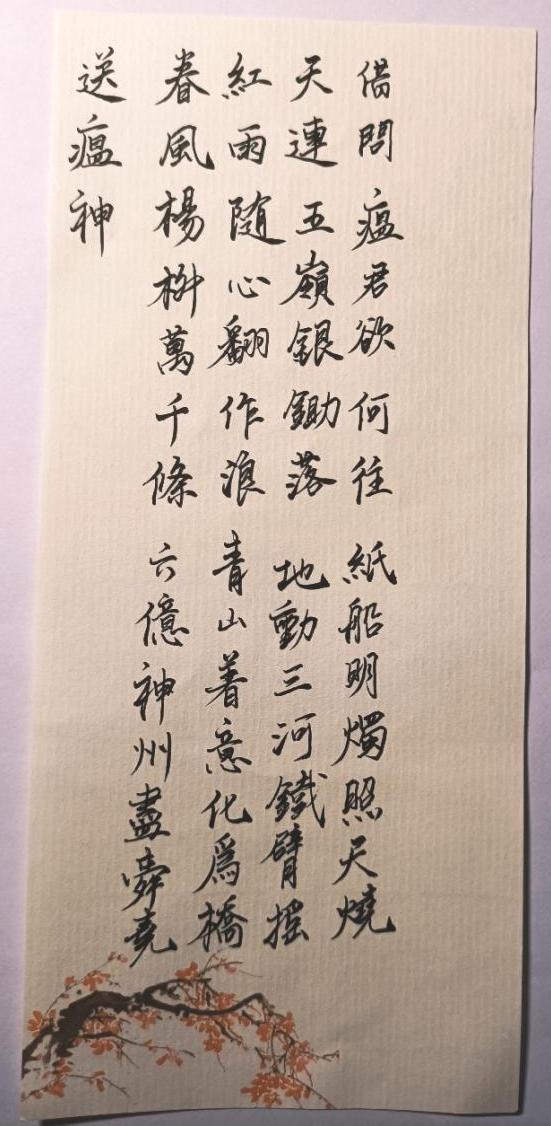 借問瘟君欲何往 紙船明燭照天燒
天連五嶺銀鋤落 地動三河鐵臂搖
紅雨隨心翻作浪 青山着意化爲橋
春風楊柳萬千條 六億神州盡舜堯
送瘟神